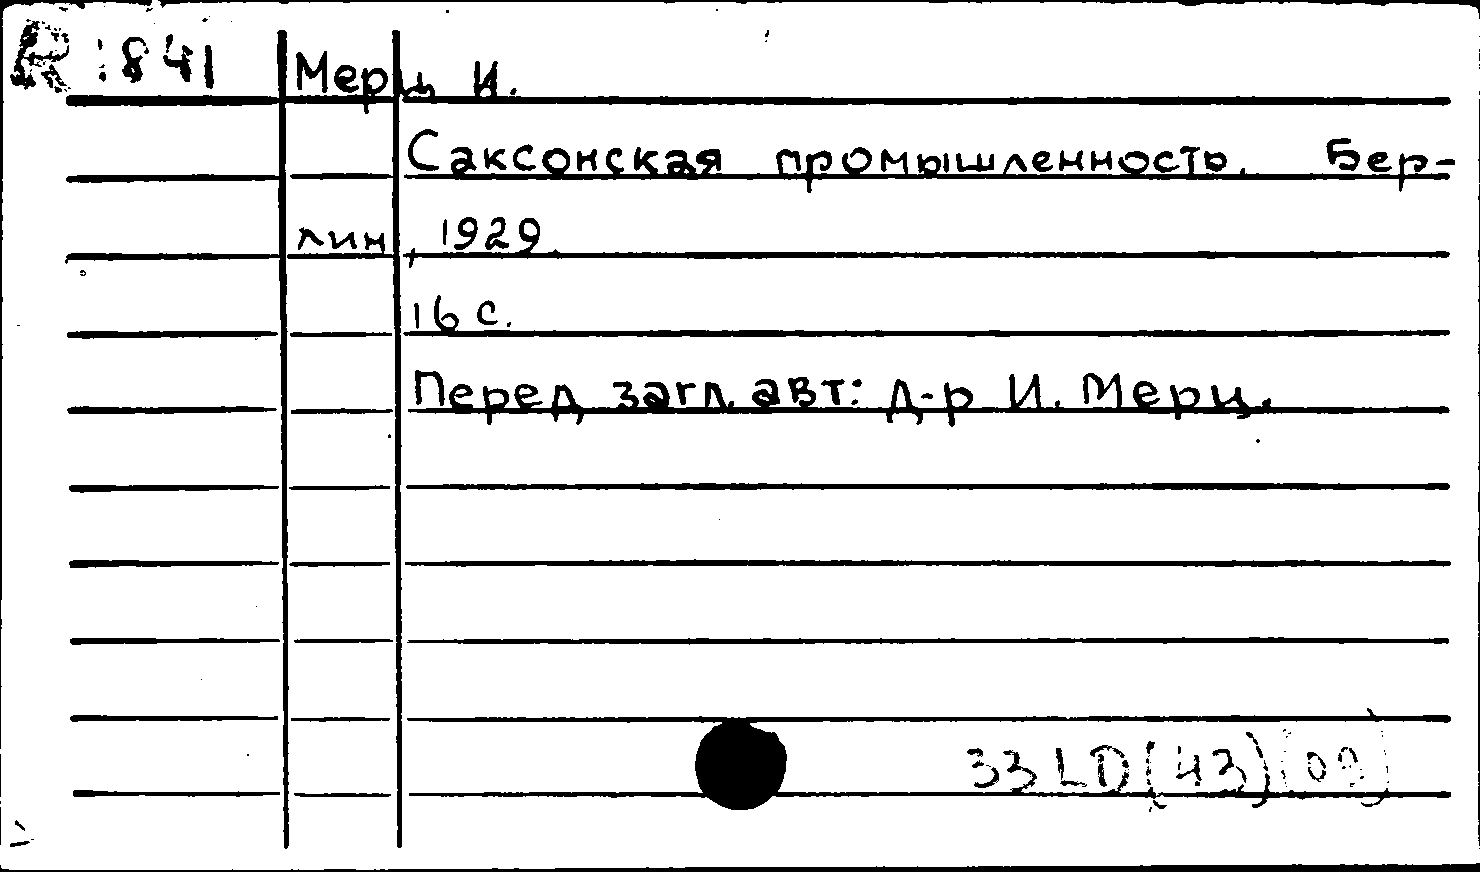 R:841 Мерц И.
Саксонская промышленность. Бер-
лин, 1929.
16 с.
Перед загл. авт: д-р И. Мерц.
33 LD (43)